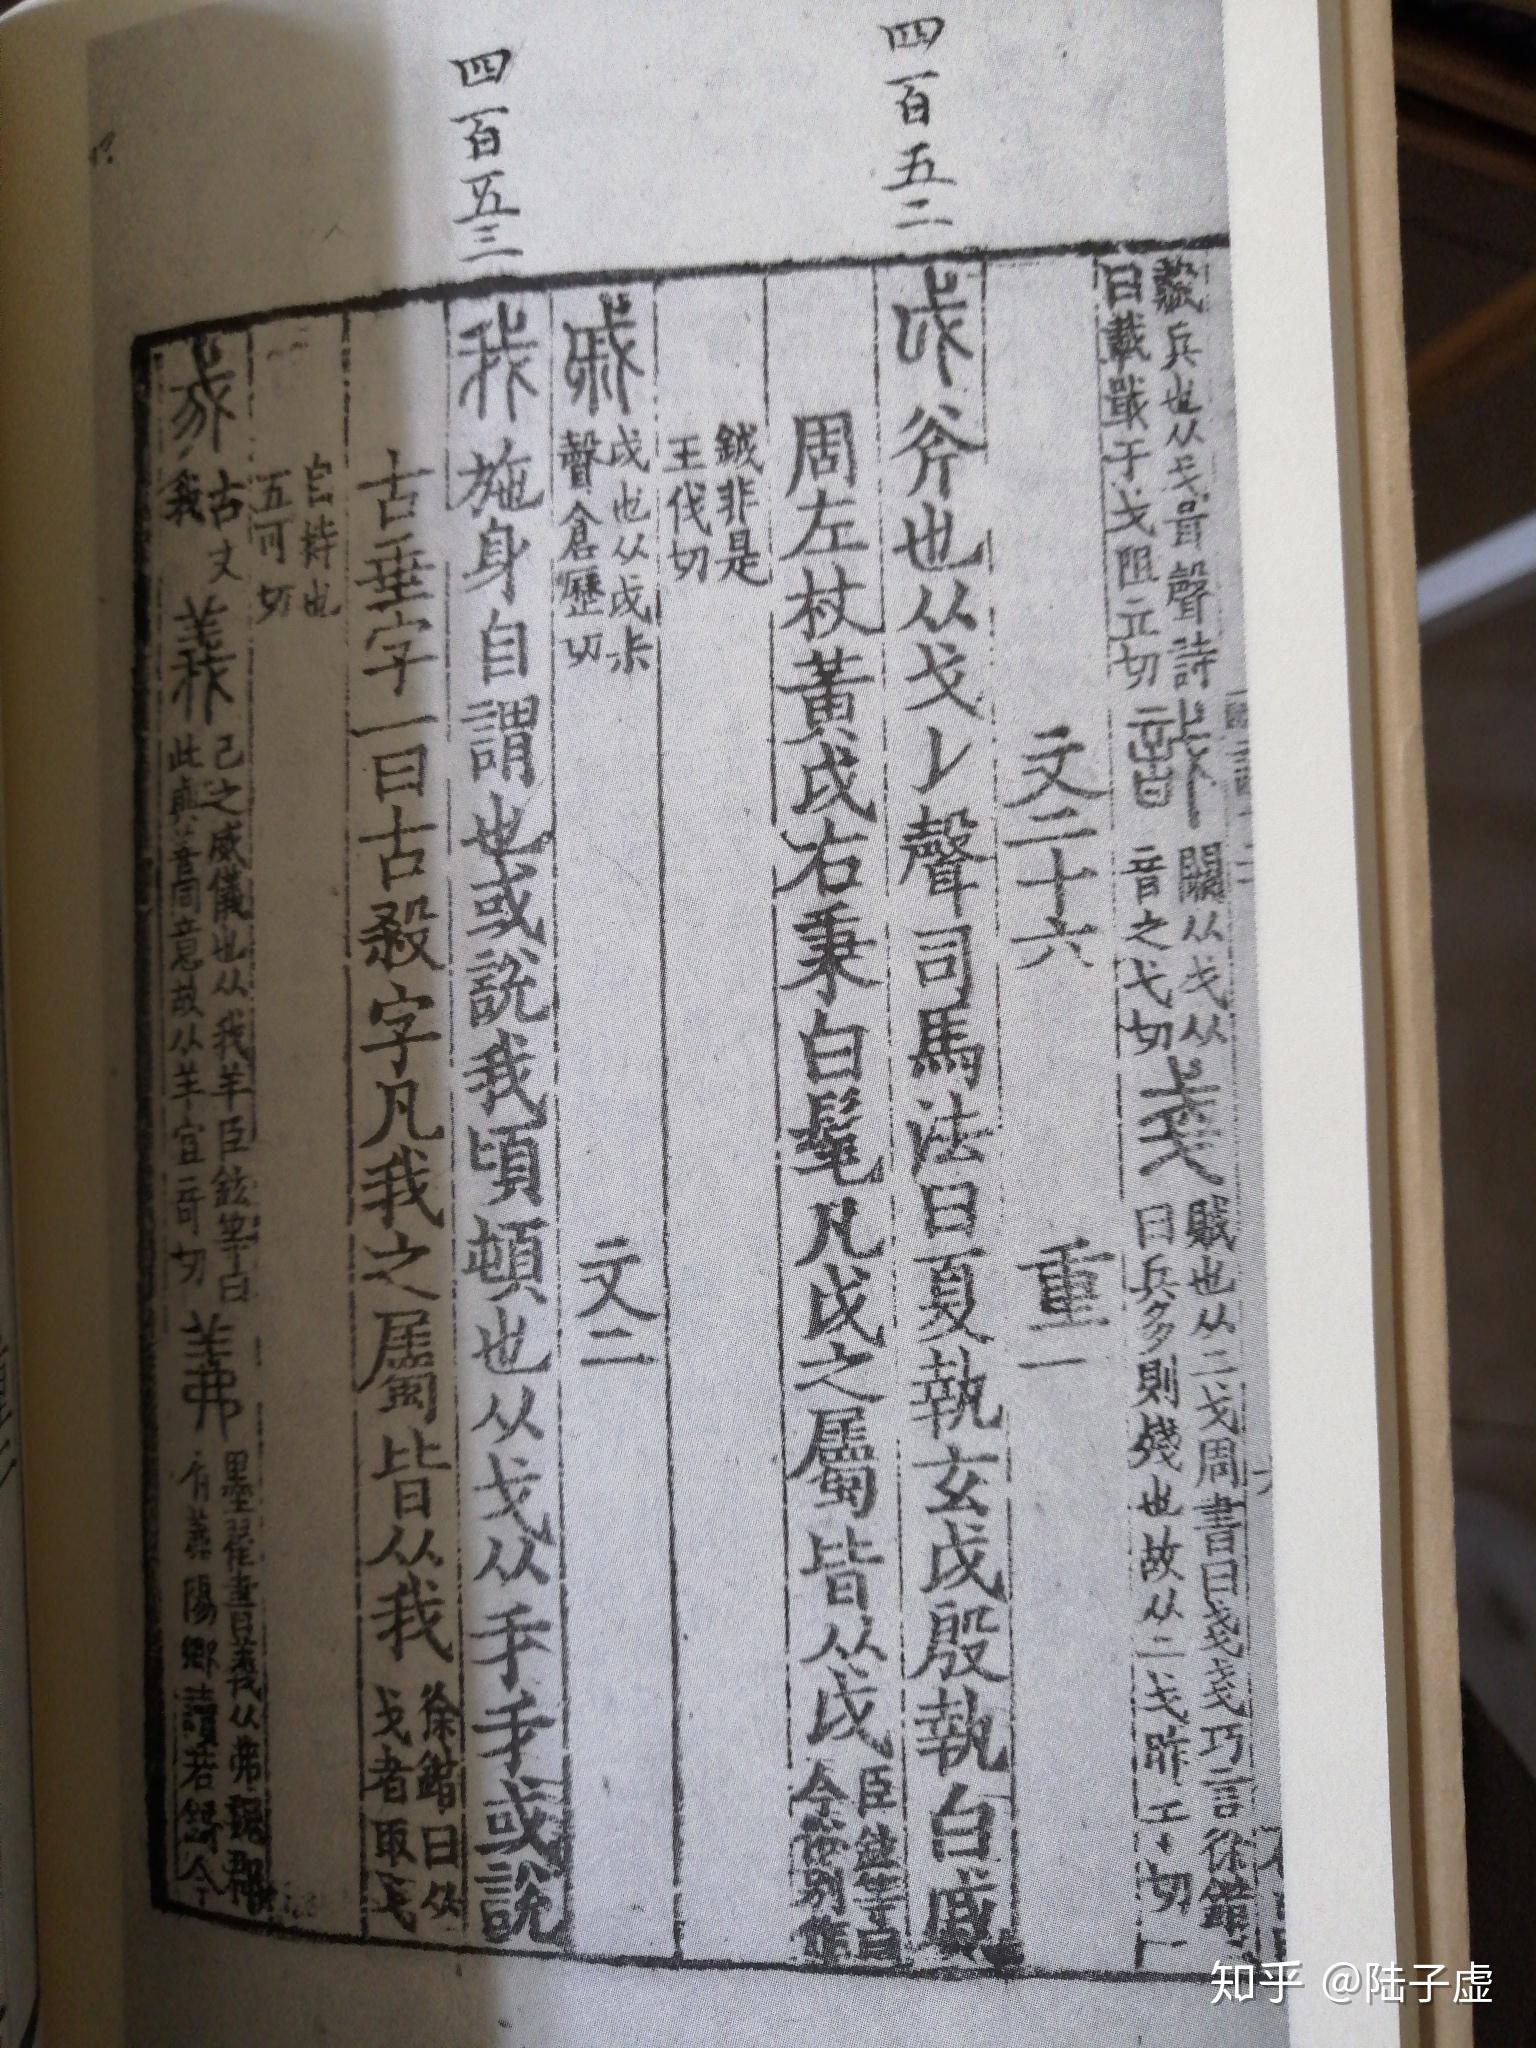 四百五二
四百五三
藏兵也从戈咠聲詩
曰載戢干戈阻立切
闕从戈从
音之弋切
戔
賊也从二戈周書曰戔戔巧言徐鍇
曰兵多則殘也故从二戈昨干切
文二十六 重一
戉 斧也从戈𠄌聲司馬法曰夏執玄戉殷執白戚
周左杖黃戉右秉白髦凡戉之屬皆从戉
臣鉉等曰
今俗別作
鉞非是
王伐切
戚
戉也从戉尗
聲倉歷切
文二
我 施身自謂也或說我頃頓也从戈从手手或說
古垂字一曰古殺字凡我之屬皆从我
徐鍇曰从
戈者取戈
自持也
五可切
古文
我
義
己之威儀也从我羊臣鉉等曰
此與善同意故从羊宜奇切
羛
墨翟書義从弗魏郡
有羛陽鄉讀若錡今
知乎 @陆子虚